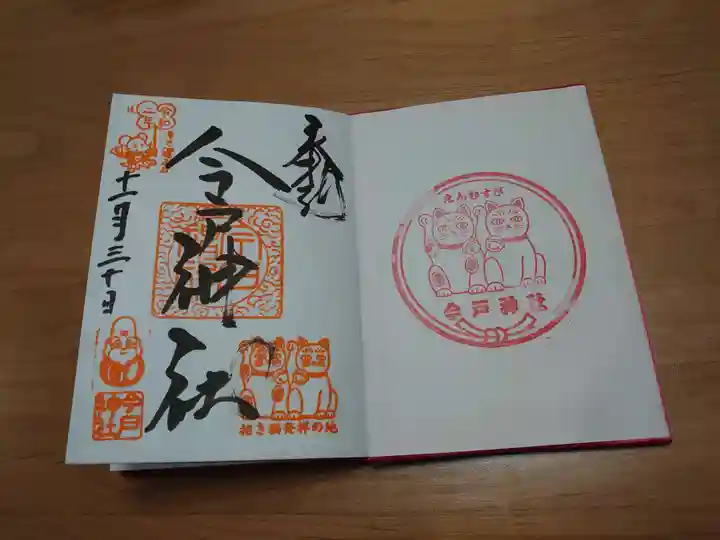 奉拝
今戸神社
十一月三十日
今戸神社
招き猫発祥の地
えんむすび
今戸神社